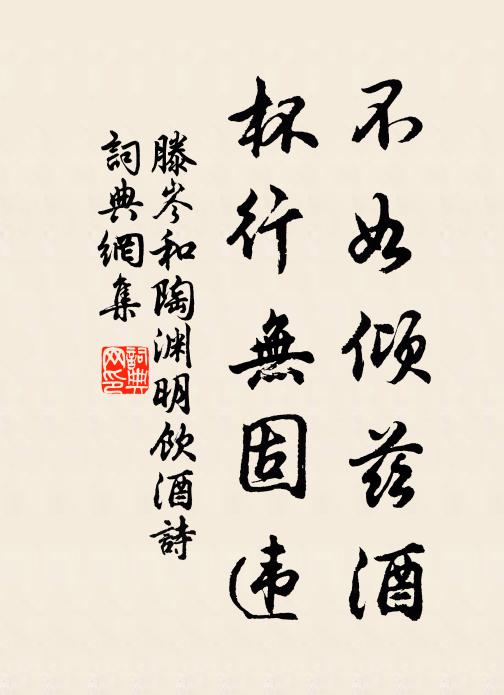 不如倾兹酒
杯行無固违
滕岑和陶渊明饮酒詩
詞典網集
詞典网印